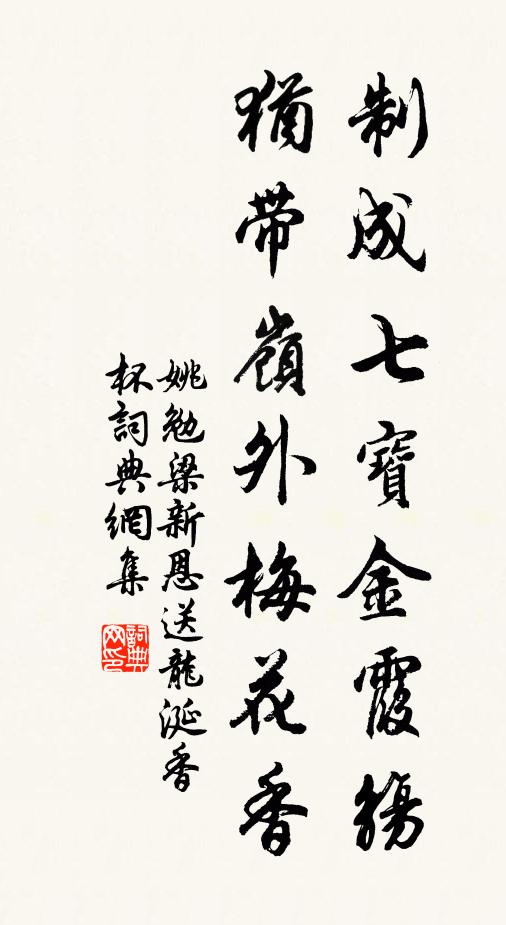 制成七寶金霞觴
猶帶嶺外梅花香
姚勉梁新恩送龍涎香
杯詞典網集
詞典网印